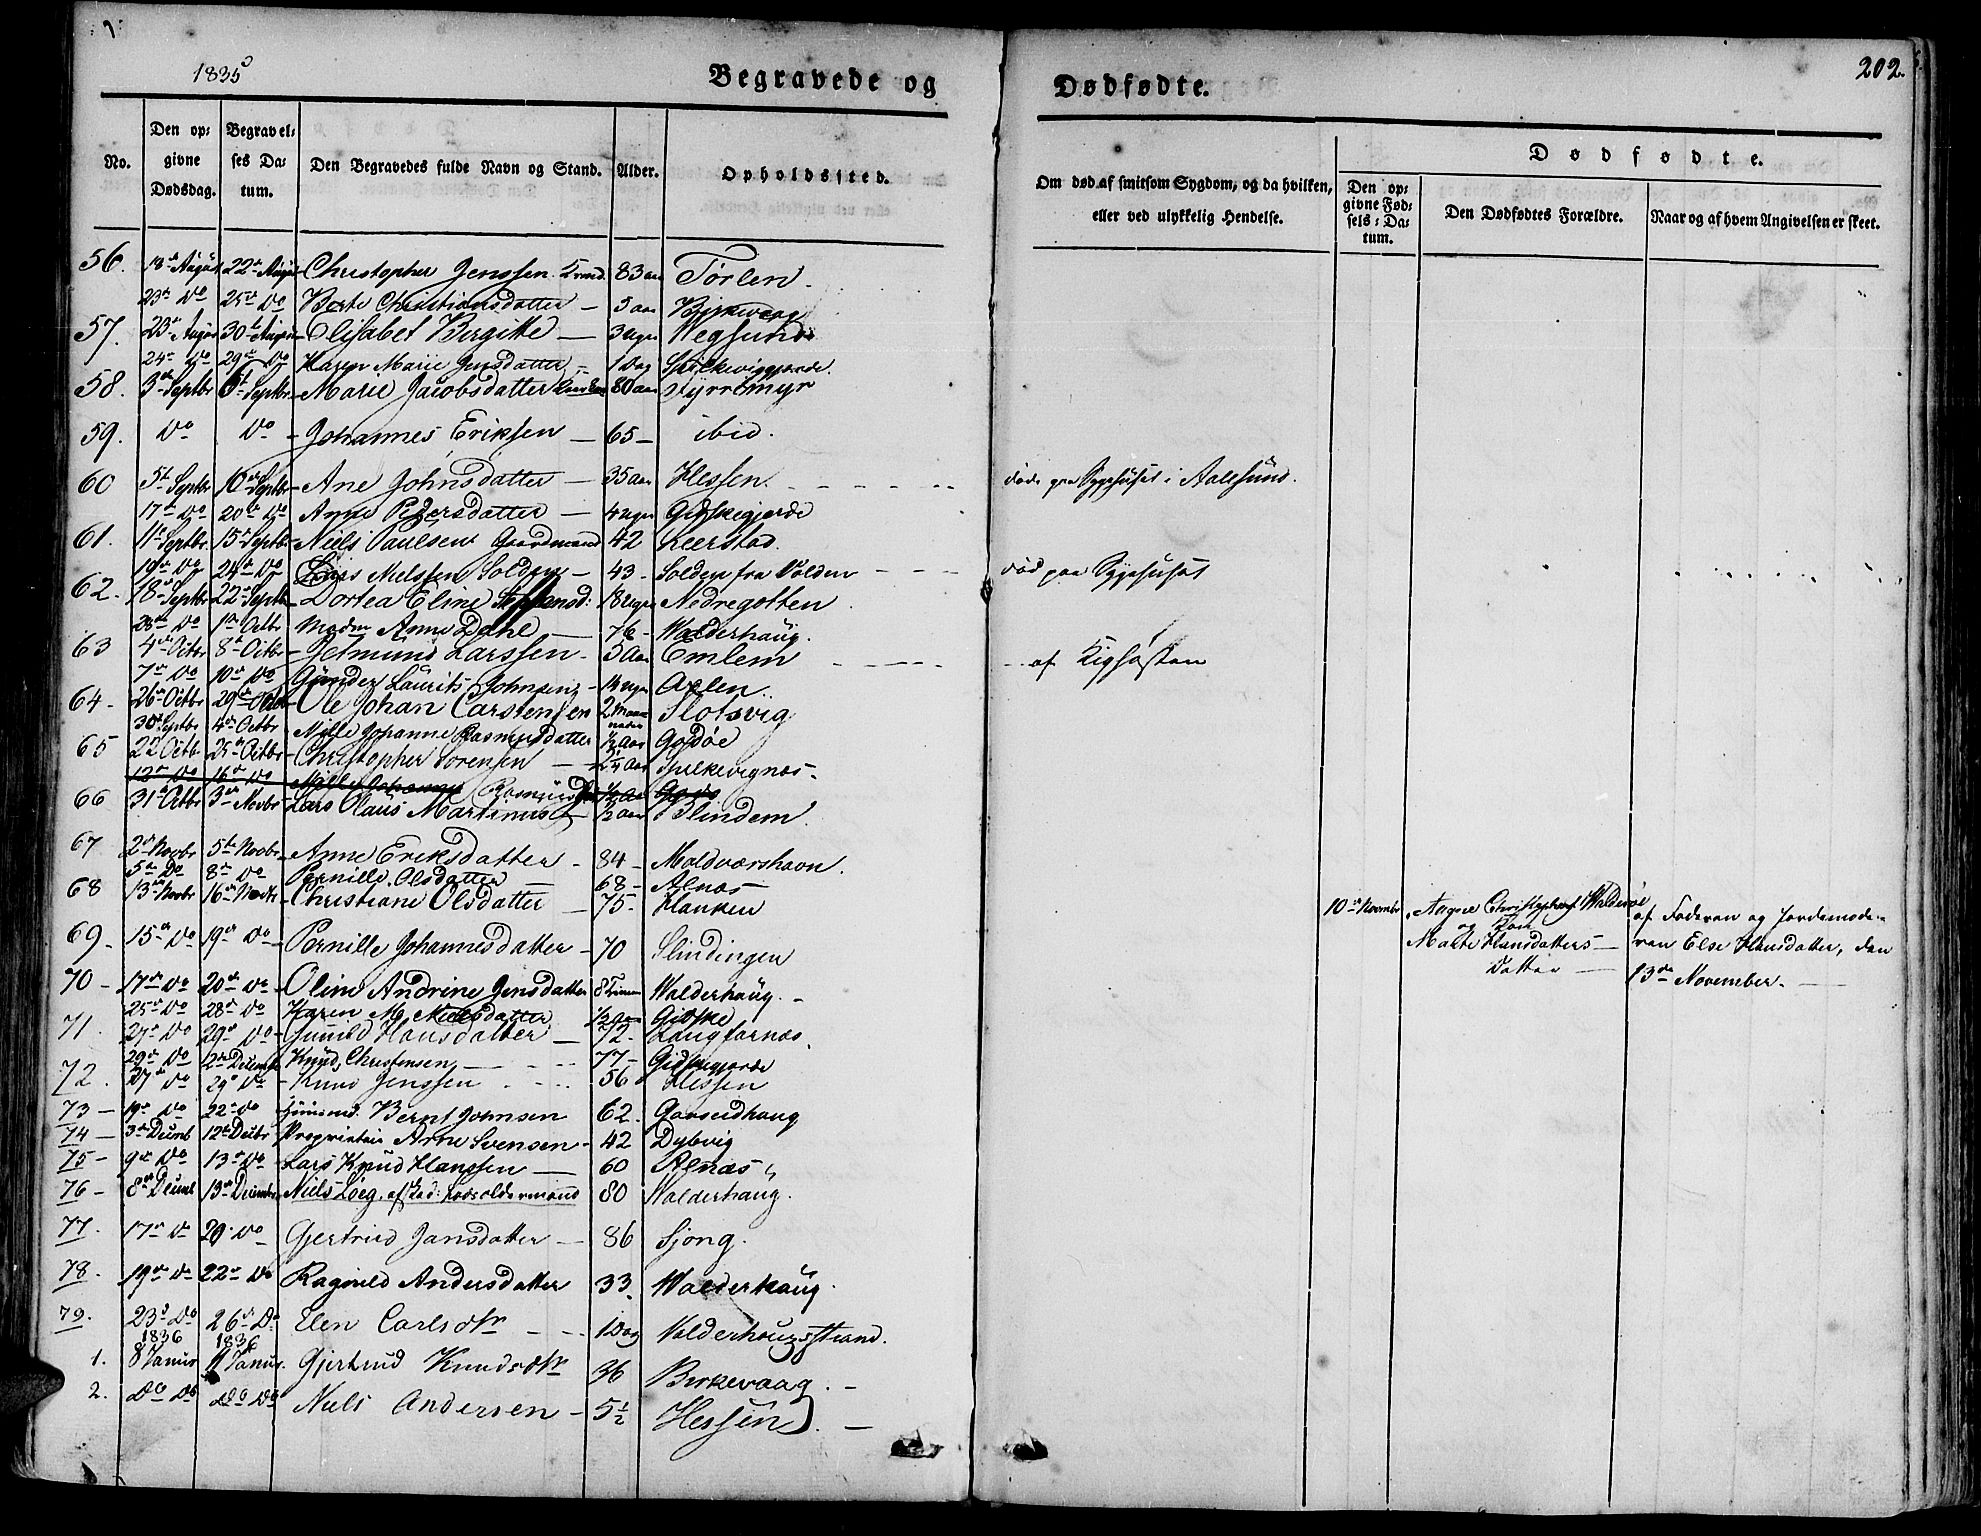 1835
Begravede og
Dødfødte.
202.
No.
Den op:
givne
Dødsdag.
Begravel:
ses Da:
tum.
Den Begravedes fulde Navn og Stand.
Alder.
Opholdssted.
Om død af smitsom Sygdom, og da hvilken,
eller ved ulykkelig Hendelse.
Dødfødte.
Den op:
givne Fød:
sels: Da:
tum.
Den Dødfødtes Forældre.
Naar og af hvem Angivelsen er skeet.
56. 18 August 22 August Christopher Jenssen 83 aar Tørlen.
23 do 25 do Berte Christiansdatter – 3 aar Birkevaag
57. 23 August 30 August Elisabet Birgitte – 3 uger Wegsund
24 do 29 do Karen Marie Jensdatter – 1 Dag
58. 3 Septbr 6 Septbr Marie Jacobsdatter 80 aar Myrremyr
59. do do – Johannes Eriksen – 65 – ibid.
60 5t Septbr 10 Septbr Ane Johnsdatter – 35 Aar Hessen. døde paa Sygehuset i Aalesund.
17 do 20 do Anne Pedersdatter – 4 uger Gidskegjerde
61. 11 Septbr 15 Septbr Niels Paulsen Gaardmand 42 Leerstad.
19 do 24 do Nielssen Soldat – 43 – fra Volden død paa Sygehuset
62. 18 Septbr 22 Septbr Dortea Eline 18 uger Nedregotten
28 do 1 Octbr Madm Anne Dahl – 76 – Walderhaug.
63 4 Octbr 8 Octbr Jetmund Larssen – 3 Aar Emlem – af Kighosten
7 do 10 do Gunder Laurits Johnsen – 14 uger Axlen.
64 – 26 Octbr 29 Octbr Ole Johan Carstensen 2 Maaneder Slotsvig
30 Septbr 4 Octbr Nille Johanne Rasmusdatter ½ Aar Godøe
65 22 Octbr 25 Octbr Christopher Sørensen – 2¼ Aar Spilkevignæs.
12 do 16 do Nille Johanne Rasmusd ½ Aar Godø
66 31 Octbr 3 Novbr Lars Olaus Martinus – ½ aar Blindem.
67 2 Novbr 5t Novbr Anne Eriksdatter – 84 – Moldværshavn.
5t Do 8 do Pernille Olsdatter – 68 – Alnæs
68 13 Novbr 16 Novbr Christiane Olsdatter – 75 – Flauken
10 Novembr. Christophersen Walderøe
og
Marte Hansdatters –
Datter –
af Faderen og Jordemode-
ren Else Hansdatter, den
13de November. –
69. 15 do 19 do – Pernille Johannesdatter – 70 Slindingen
70 – 17 do 20 do – Oline Andrine Jensdatter 8 Timer Walderhaug. –
25 do 28 do Karen M. Nielsdatter ½ aar Gidske
71. 27 do 29 do – Gunild Hansdatter – 72 – Langfornæs.
29 do 2 Decembr Knud Christensen – 77 – Gidskegjerde
72. 27 do 29 do – Knud Jenssen 56 Hessen
73 – 19 do 22 do Huusmd. Bernt Johnsen 62. Gaaseidhaug
74 – 3 Decmb 12te Decbr Proprietair Arne Svensen – 42 Dybvig
75 – 9 do 13 do Lars Knud Hanssen – 60 Alnæs
76 – 8 Decmb 13 Decembr Niels Løeg, afsked: Lodsoldermand 80 Walderhaug.
77. 17 do 20. do Gjertrud Jansdatter – 86 Sjong.
78. 19 do 22 do Ragnild Andersdatter 33. Walderhaug.
79. 23 Do 26 Do Elen Carlsdtr – 1 Dag Valderhaugsstrand.
1836 1836
1. 8 Janur 11 Janur. Gjertrud Knudsdtr 36 Birkevaag. –
2. Do Do Do Do Niels Andersen – 5½ Hessen. –